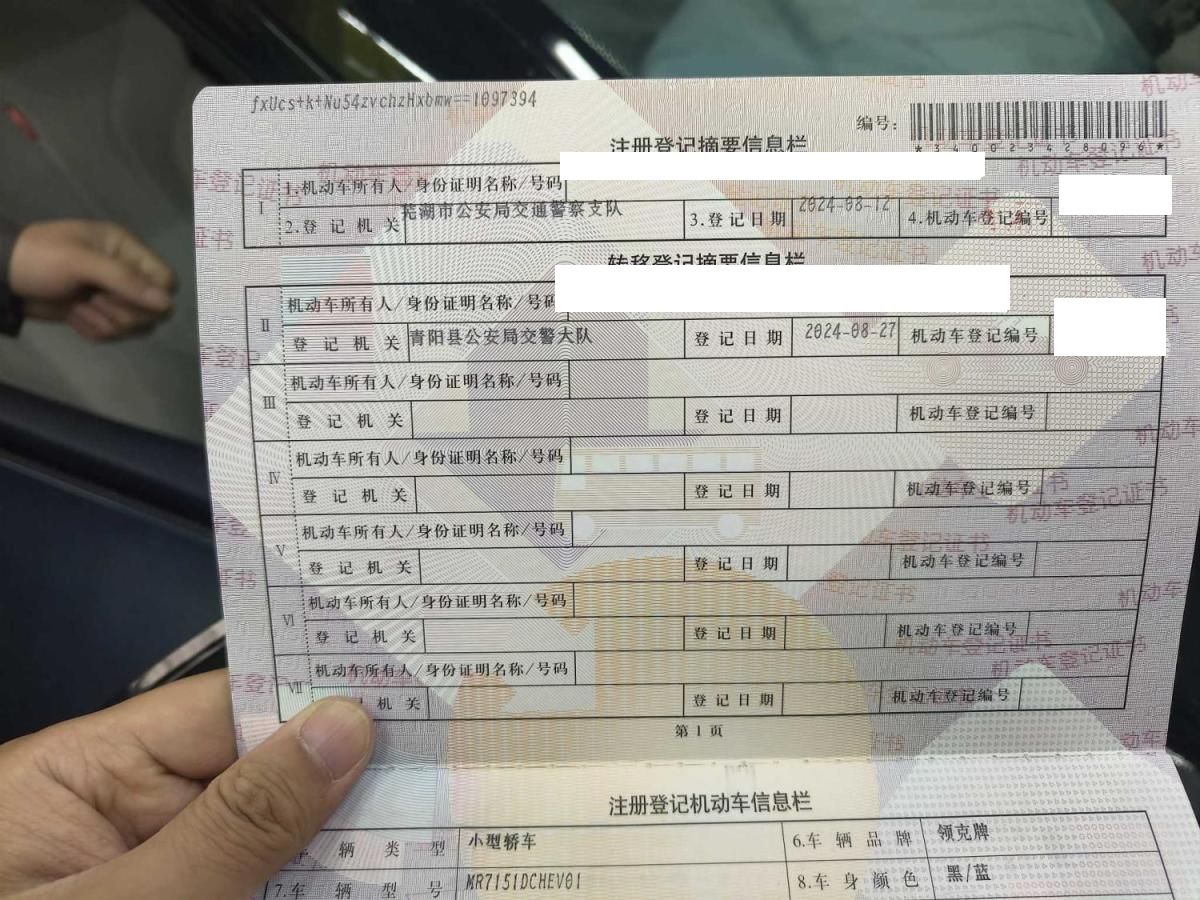 fxUcs+k+Nu54zvchzHxbmw==1097394
编号：
*340023428096*
注册登记摘要信息栏
Ⅰ 1.机动车所有人/身份证明名称/号码
2.登记机关 芜湖市公安局交通警察支队 3.登记日期 2024-08-12 4.机动车登记编号
转移登记摘要信息栏
Ⅱ 机动车所有人/身份证明名称/号码
登记机关 青阳县公安局交警大队 登记日期 2024-08-27 机动车登记编号
Ⅲ 机动车所有人/身份证明名称/号码
登记机关 登记日期 机动车登记编号
Ⅳ 机动车所有人/身份证明名称/号码
登记机关 登记日期 机动车登记编号
Ⅴ 机动车所有人/身份证明名称/号码
登记机关 登记日期 机动车登记编号
Ⅵ 机动车所有人/身份证明名称/号码
登记机关 登记日期 机动车登记编号
Ⅶ 机动车所有人/身份证明名称/号码
机关 登记日期 机动车登记编号
第1页
注册登记机动车信息栏
车辆类型 小型轿车 6.车辆品牌 领克牌
7.车辆型号 MR7151DCHEV01 8.车身颜色 黑/蓝